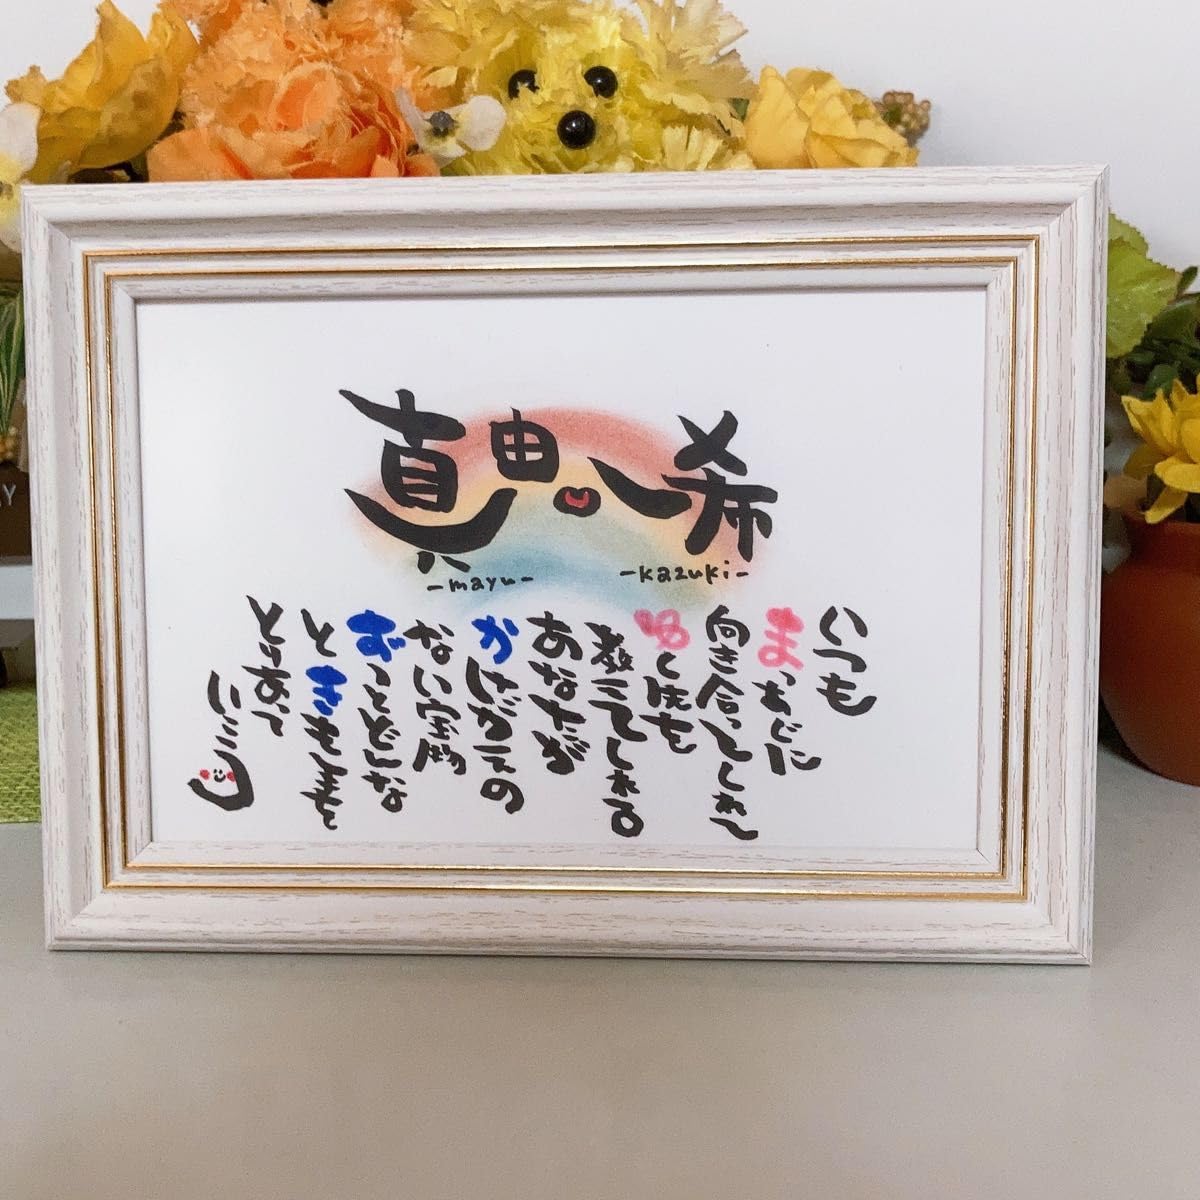 真由 一希
-mayu- -kazuki-
いつも
まっすぐに
向き合ってくれ
ゆく先も
教えてくれる
あなたが
かけがえの
ない宝物
ずっとどんな
ときも手を
とりあって
いこう